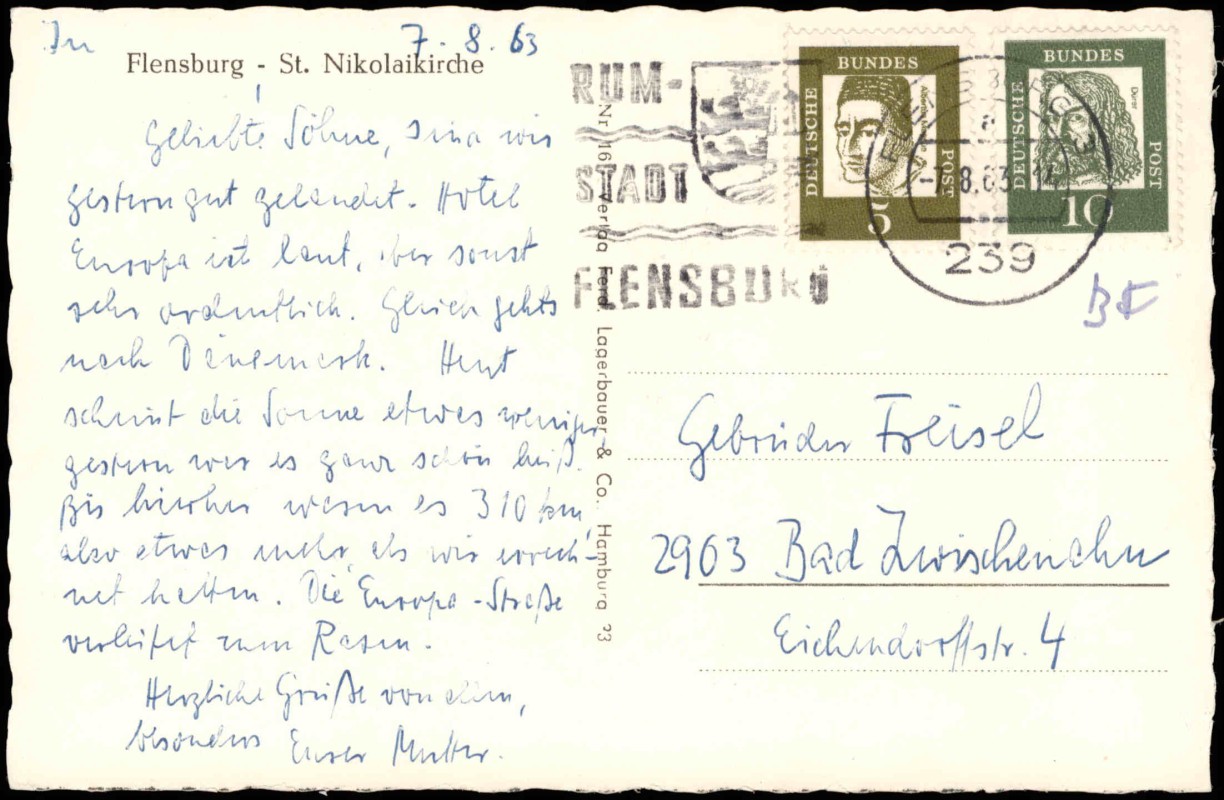 In 7. 8. 63
Flensburg - St. Nikolaikirche
Geliebte Söhne, sind wir
gestern gut gelandet. Hotel
Europa ist laut, aber sonst
sehr ordentlich. Gleich gehts
nach Dänemark. Heut
scheint die Sonne etwas weniger
gestern war es ganz schön heiß.
Bis hierher waren es 310 km,
also etwas mehr, als wir errech-
net hatten. Die Europa-Straße
verleitet zum Rasen.
Herzliche Grüße von allen,
besonders Eurer Mutter.
Nr. 16 Verlag Ferd. Lagerbauer & Co., Hamburg 23
RUM-
STADT
FLENSBURG
DEUTSCHE
BUNDES
POST
5
DEUTSCHE
BUNDES
POST
Dürer
10
FLENSBURG
a
-7.8.63-14
239
BF
Gebrüder Freisel
2903 Bad Zwischenahn
Eichendorffstr. 4